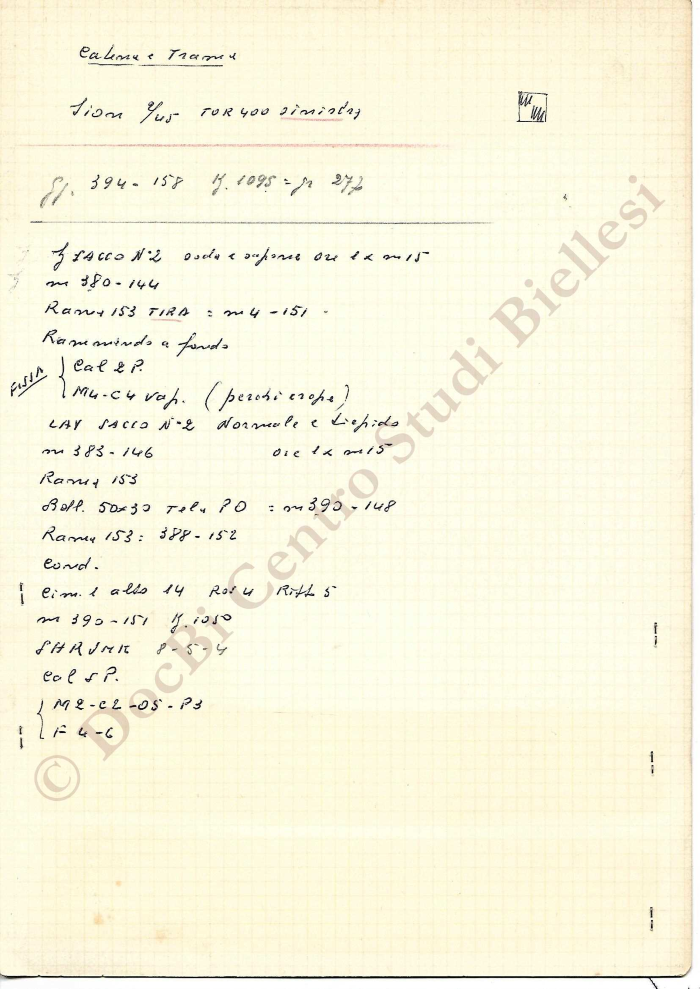 Catena e Trama
Sion 2/45 TOR 400 sinistra
394 - 158 K. 1095 = gr 277
SACCO N°2 soda e sapone ore 1 e m 15
m 380 - 144
Rama 153 TIRA = m 4 - 151
Rammindo a fondo
FISSA
Cal 2 P.
M4 - C4 vap. (perchè crope)
LAV SACCO N°2 Normale e tiepido
m 383 - 146 ore 1 e m 15
Rama 153
Boll. 50x30 Tela PO = m 390 - 148
Rama 153 : 388 - 152
Cond.
Cim. 1 alto 14 Ros 4 5
m 390 - 151 K. 1050
SHRUNK 8 - 5 - 4
Cal 5 P.
M2 - C2 - O5 - P3
F 4 - 6
© DocBi Centro Studi Biellesi